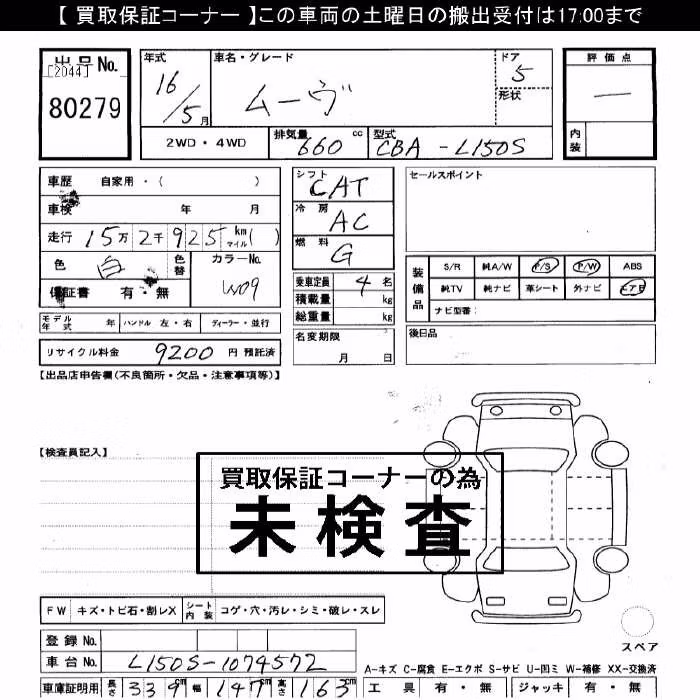 【 買取保証コーナー 】この車両の土曜日の搬出受付は17:00まで
出品 No.
[2044]
80279
年式 16/5月
車名・グレード ムーヴ
ドア 5
形状
評価点 —
内装
2WD・4WD
排気量 660 cc
型式 CBA-L150S
車歴 自家用・( )
車検 年 月
走行 15万2千925 km マイル( )
色 白 色替
カラーNo. W09
保証書 有・無
モデル年式 年 ハンドル 左・右 ディーラー・並行
リサイクル料金 9200 円 預託済
シフト CAT
冷房 AC
燃料 G
乗車定員 4 名
積載量 kg
総重量 kg
名変期限 月 日
セールスポイント
装備品
S/R 純A/W P/S P/W ABS
純TV 純ナビ 革シート 外ナビ エアB
ナビ型番：
後日品
【出品店申告欄(不良箇所・欠品・注意事項等)】
【検査員記入】
買取保証コーナーの為
未検査
FW キズ・トビ石・割レX シート内装 コゲ・穴・汚レ・シミ・破レ・スレ
スペア
登録 No.
車台 No. L150S-1074572
車庫証明用 長さ 339cm 幅 147cm 高さ 163cm
A-キズ C-腐食 E-エクボ S-サビ U-凹ミ W-補修 XX-交換済
工具 有・無 ジャッキ 有・無